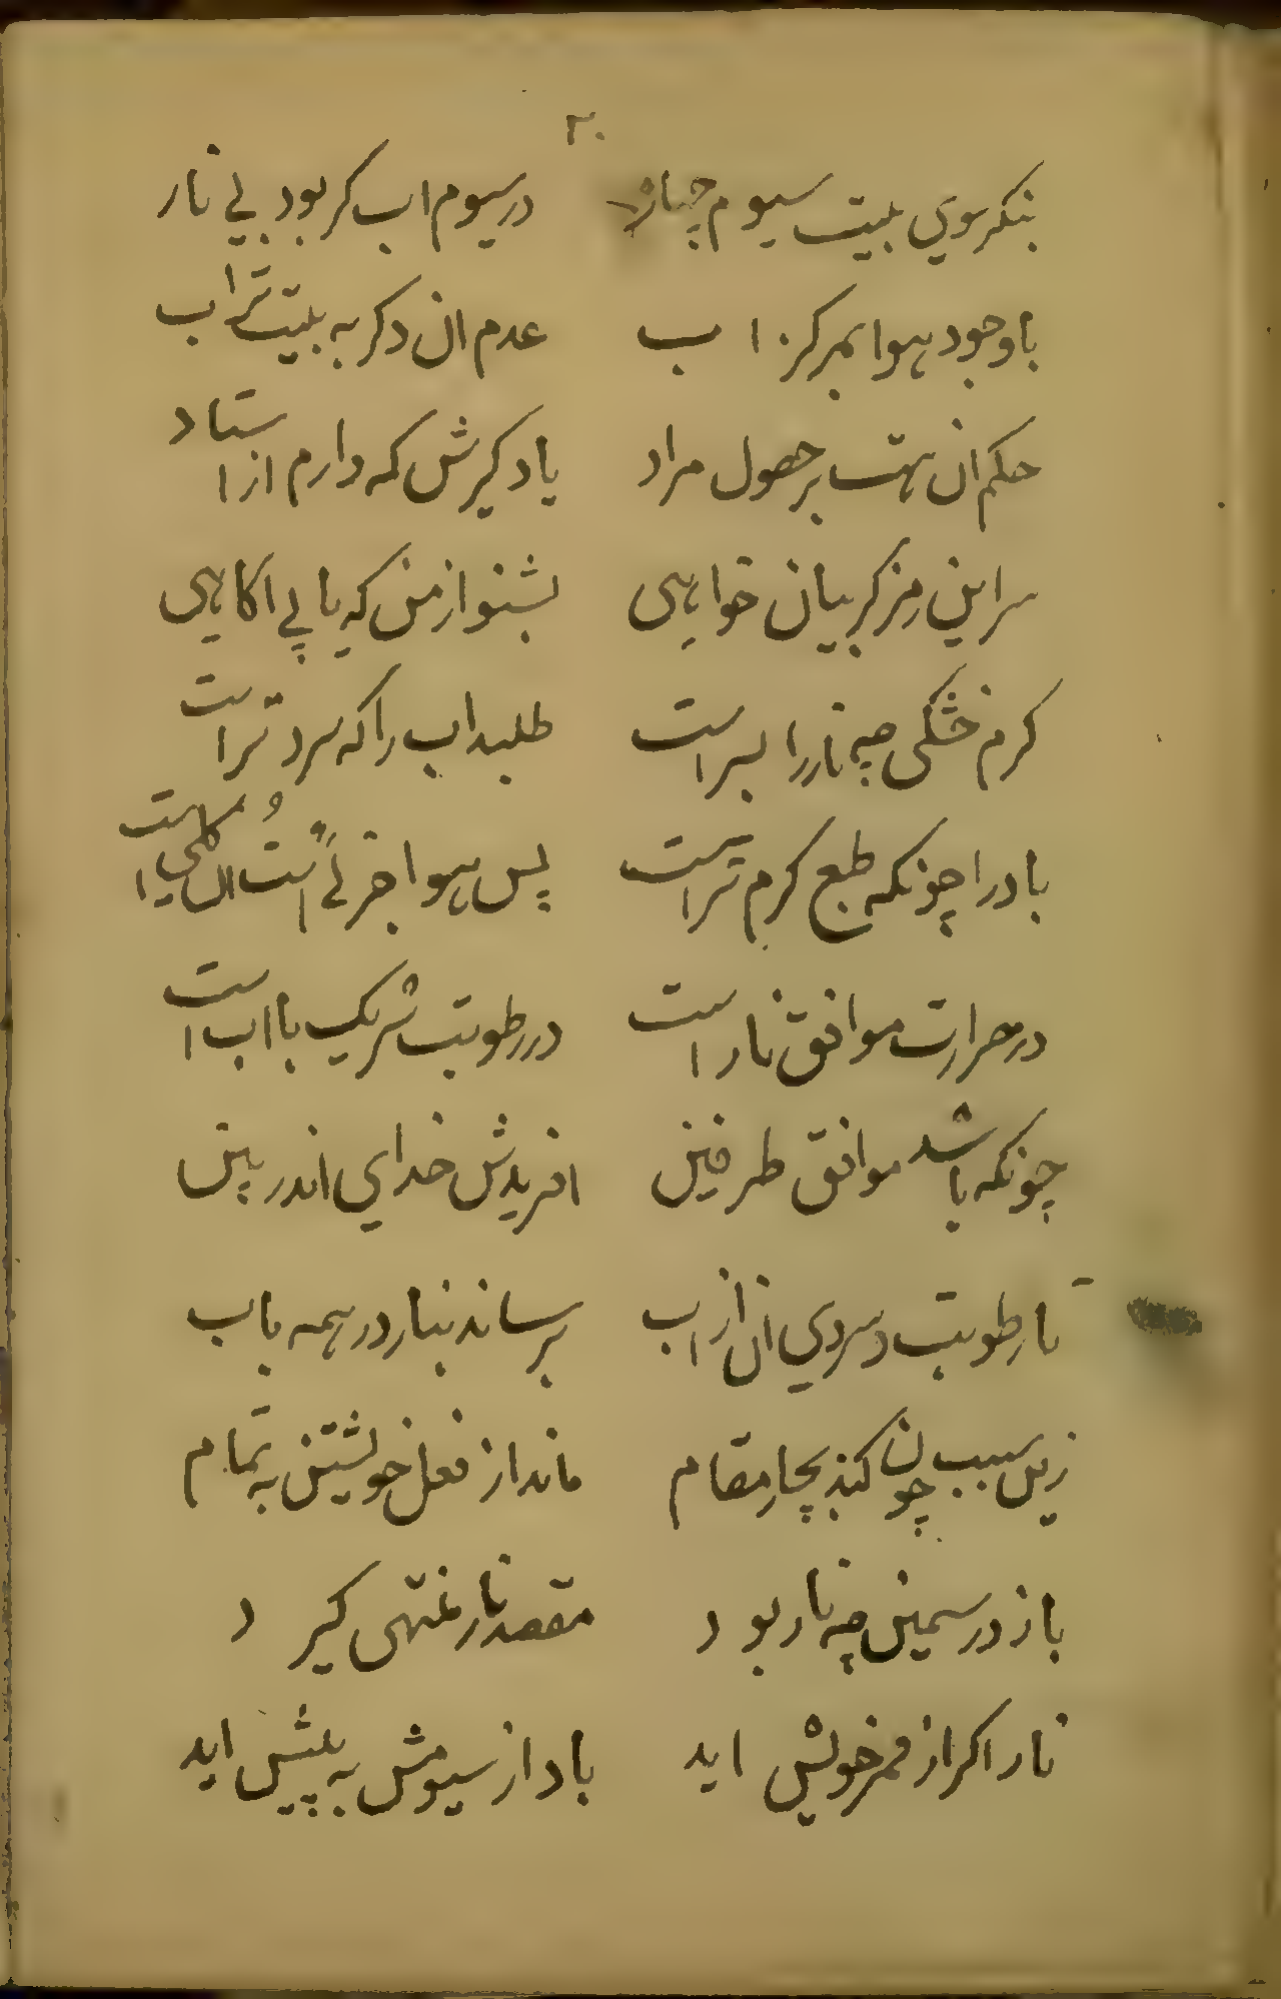 ۲۰
بنکر سوي بیت سیوم چهار در سیوم اب کر بود بي نار
با وجود هوا بمرکز اب عدم ان دکر به بیت تراب
حکم ان هست بر حصول مراد یاد کیرش که دارم از استاد
سر این رمز کر بیان خواهی بشنو از من که یا پي اکاهی
کرم خشکی چه نار را بسر است طلبد اب را که سرد تر است
باد را چونکه طبع کرم تر است پس هوا جزئ است
در حرارت موافق نار است در رطوبت شریک با اب است
چونکه باشد موافق طرفین افریدش خداي اندر بین
تا رطوبت و سردي ان از اب برساند بنار در همه باب
زین سبب چون کند بچار مقام ماند از فعل خویشتن به تمام
باز در سمین چه نار بود مقصد نار منتهی کیرد
نار اکر از قمر خویش اید باد از سیومش به پیش اید